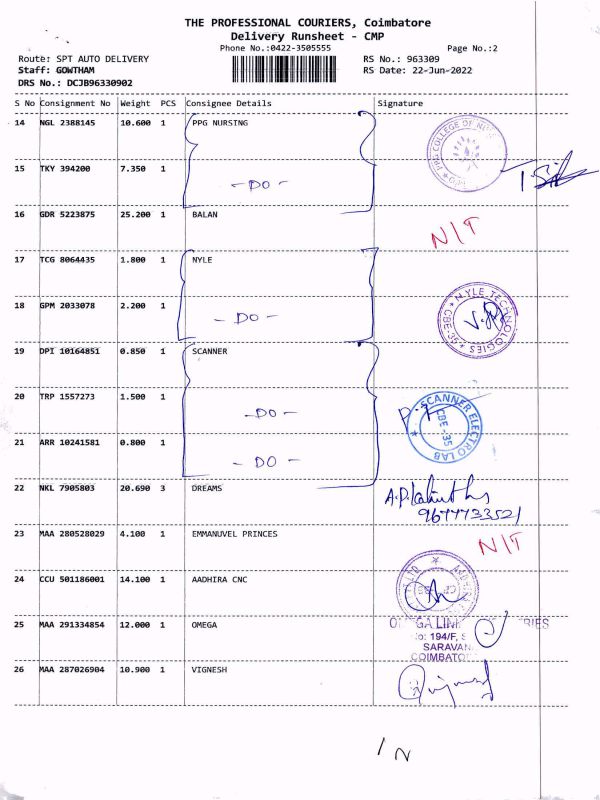 THE PROFESSIONAL COURIERS, Coimbatore
Delivery Runsheet - CMP
Phone No.:0422-3505555 Page No.:2
Route: SPT AUTO DELIVERY RS No.: 963309
Staff: GOWTHAM RS Date: 22-Jun-2022
DRS No.: DCJB96330902
S No Consignment No Weight PCS Consignee Details Signature
14 NGL 2388145 10.600 1 PPG NURSING
PPG COLLEGE OF
15 TKY 394200 7.350 1
- DO -
16 GDR 5223875 25.200 1 BALAN
N/T
17 TCG 8064435 1.800 1 NYLE
18 GPM 2033078 2.200 1
- DO -
NYLE TECHNOLOGIES
CBE-35
19 DPI 10164851 0.850 1 SCANNER
20 TRP 1557273 1.500 1
- DO -
SCANNER ELECTRO LAB
CBE-35
21 ARR 10241581 0.800 1
- DO -
22 NKL 7905803 20.690 3 DREAMS
9677733521
23 MAA 280528029 4.100 1 EMMANUVEL PRINCES
N/T
24 CCU 501186001 14.100 1 AADHIRA CNC
25 MAA 291334854 12.000 1 OMEGA
194/F,
26 MAA 287026904 10.900 1 VIGNESH
1 N